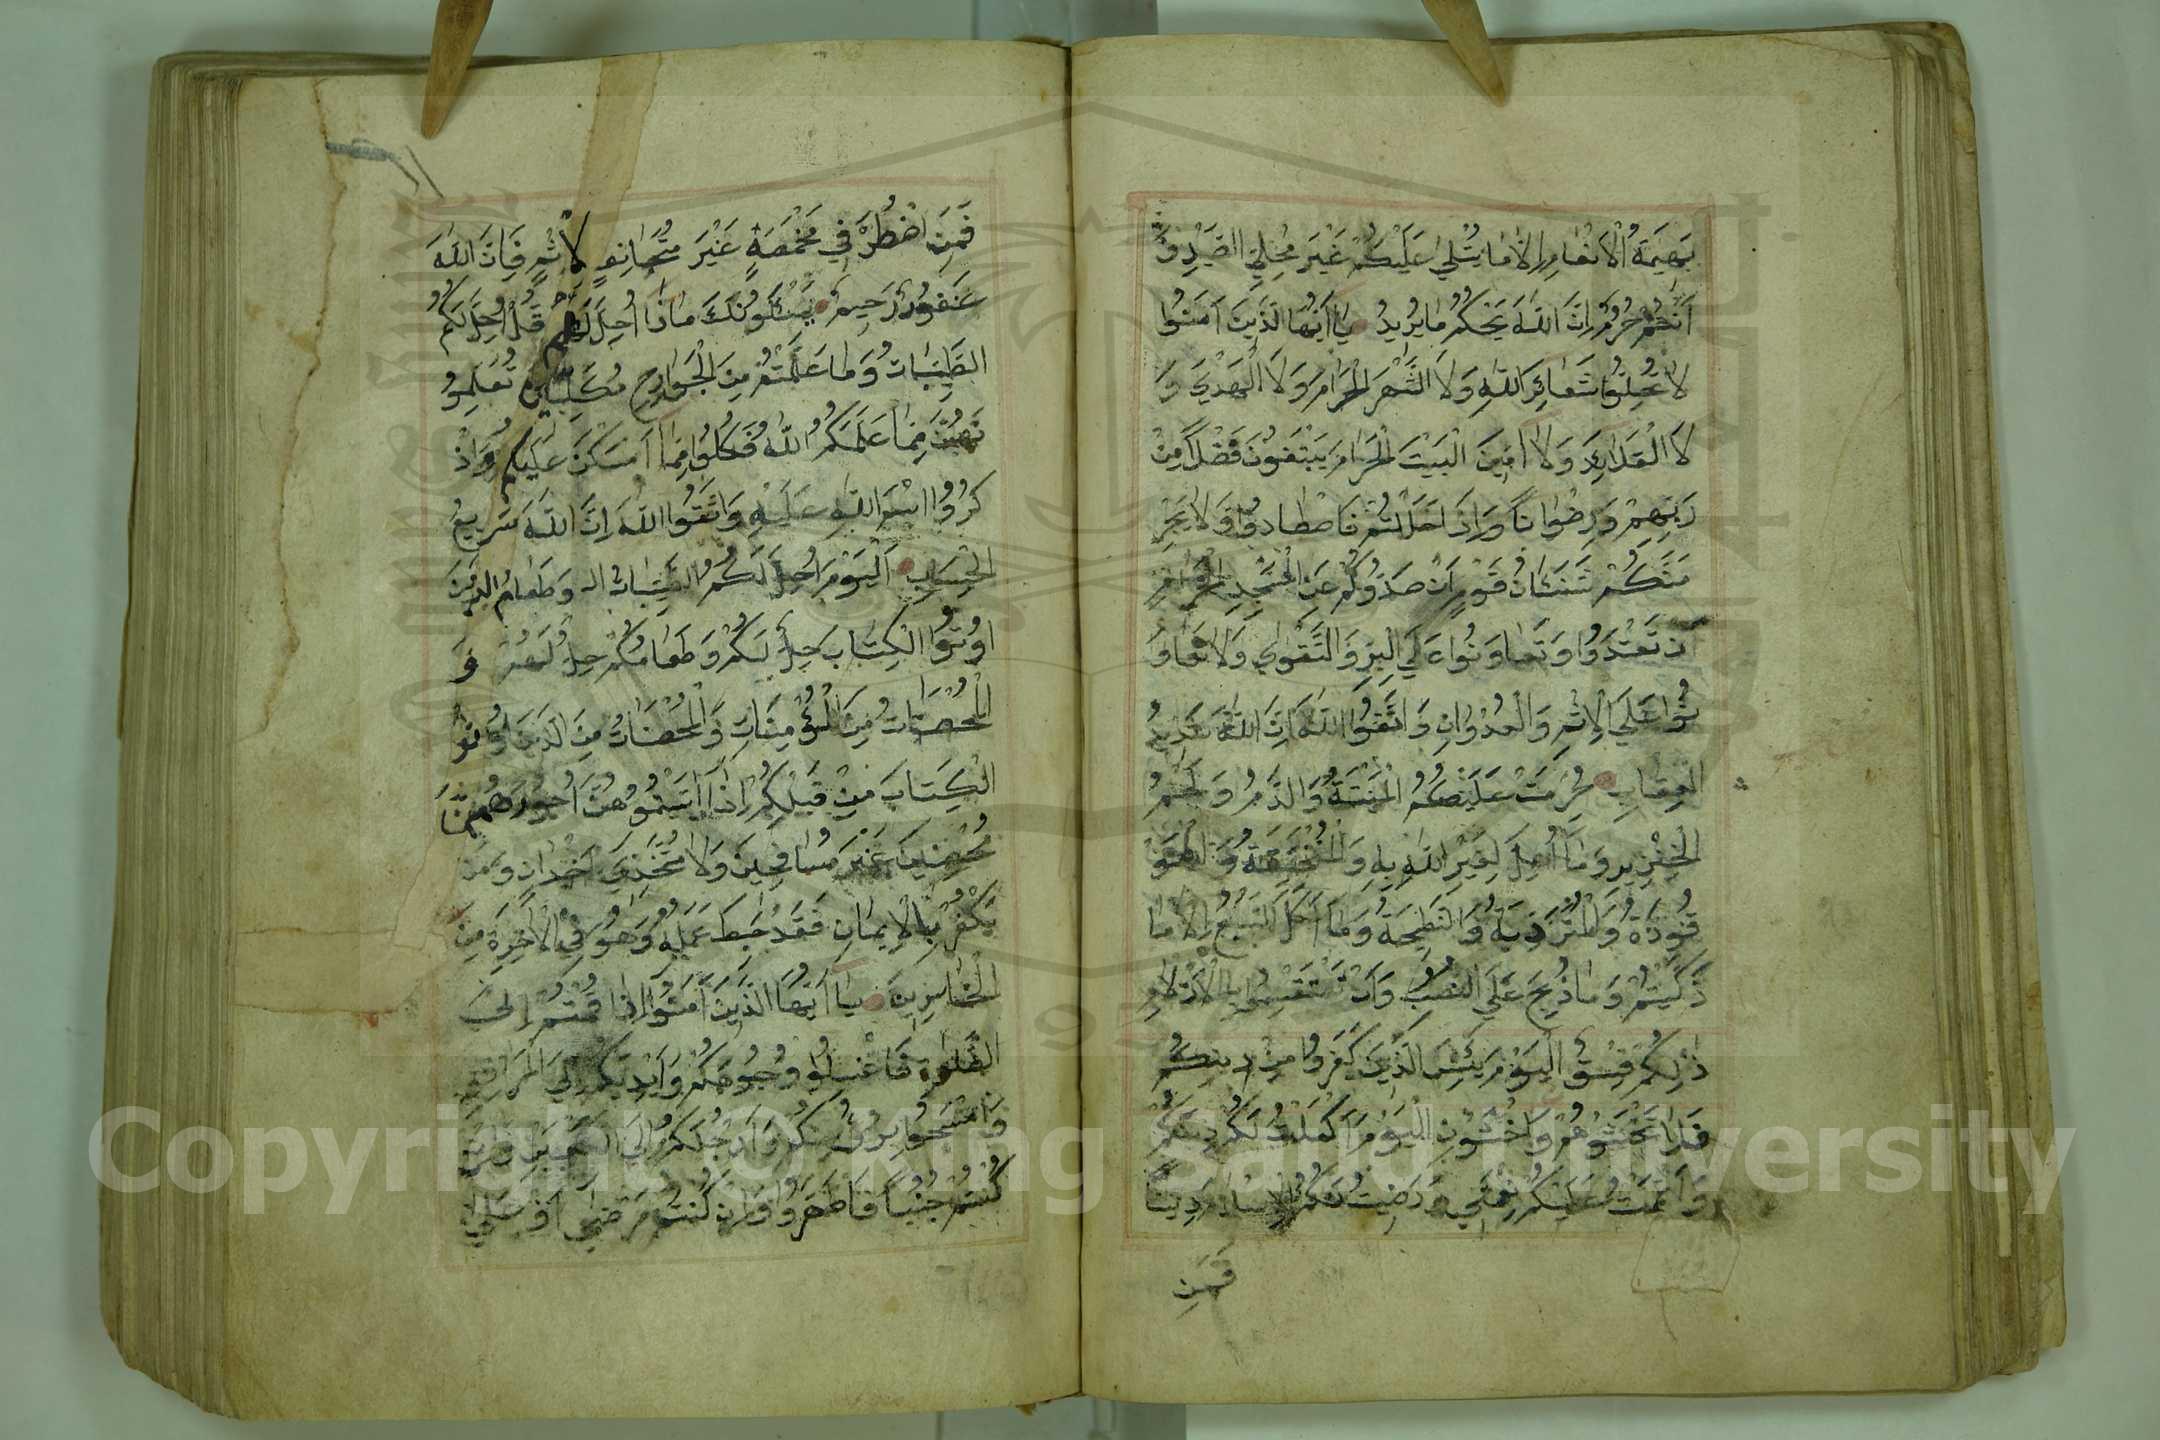 بَهِيمَةُ الْاَنْعَامِ اِلَّا مَا يُتْلٰى عَلَيْكُمْ غَيْرَ مُحِلِّي الصَّيْدِ وَ
اَنْتُمْ حُرُمٌ اِنَّ اللّٰهَ يَحْكُمُ مَا يُرِيدُ يَا اَيُّهَا الَّذِينَ اٰمَنُوا
لَا تُحِلُّوا شَعَائِرَ اللّٰهِ وَلَا الشَّهْرَ الْحَرَامَ وَلَا الْهَدْيَ وَ
لَا الْقَلَائِدَ وَلَا اٰمِّينَ الْبَيْتَ الْحَرَامَ يَبْتَغُونَ فَضْلًا مِنْ
رَبِّهِمْ وَرِضْوَانًا وَاِذَا حَلَلْتُمْ فَاصْطَادُوا وَلَا يَجْرِ
مَنَّكُمْ شَنَئَانُ قَوْمٍ اَنْ صَدُّوكُمْ عَنِ الْمَسْجِدِ الْحَرَامِ
اَنْ تَعْتَدُوا وَتَعَاوَنُوا عَلَى الْبِرِّ وَالتَّقْوٰى وَلَا تَعَاوَ
نُوا عَلَى الْاِثْمِ وَالْعُدْوَانِ وَاتَّقُوا اللّٰهَ اِنَّ اللّٰهَ شَدِيدُ
الْعِقَابِ حُرِّمَتْ عَلَيْكُمُ الْمَيْتَةُ وَالدَّمُ وَلَحْمُ
الْخِنْزِيرِ وَمَا اُهِلَّ لِغَيْرِ اللّٰهِ بِهِ وَالْمُنْخَنِقَةُ وَالْمَوْ
قُوذَةُ وَالْمُتَرَدِّيَةُ وَالنَّطِيحَةُ وَمَا اَكَلَ السَّبُعُ اِلَّا مَا
ذَكَّيْتُمْ وَمَا ذُبِحَ عَلَى النُّصُبِ وَاَنْ تَسْتَقْسِمُوا بِالْاَزْلَامِ
ذٰلِكُمْ فِسْقٌ اَلْيَوْمَ يَئِسَ الَّذِينَ كَفَرُوا مِنْ دِينِكُمْ
فَلَا تَخْشَوْهُمْ وَاخْشَوْنِ الْيَوْمَ اَكْمَلْتُ لَكُمْ دِينَكُمْ
وَاَتْمَمْتُ عَلَيْكُمْ نِعْمَتِي وَرَضِيتُ لَكُمُ الْاِسْلَامَ دِينًا
فَمَنِ
فَمَنِ اضْطُرَّ فِي مَخْمَصَةٍ غَيْرَ مُتَجَانِفٍ لِاِثْمٍ فَاِنَّ اللّٰهَ
غَفُورٌ رَحِيمٌ يَسْئَلُونَكَ مَاذَا اُحِلَّ لَهُمْ قُلْ اُحِلَّ لَكُمُ
الطَّيِّبَاتُ وَمَا عَلَّمْتُمْ مِنَ الْجَوَارِحِ مُكَلِّبِينَ تُعَلِّمُو
نَهُنَّ مِمَّا عَلَّمَكُمُ اللّٰهُ فَكُلُوا مِمَّا اَمْسَكْنَ عَلَيْكُمْ وَاذْ
كُرُوا اسْمَ اللّٰهِ عَلَيْهِ وَاتَّقُوا اللّٰهَ اِنَّ اللّٰهَ سَرِيعُ
الْحِسَابِ اَلْيَوْمَ اُحِلَّ لَكُمُ الطَّيِّبَاتُ وَطَعَامُ الَّذِينَ
اُوتُوا الْكِتَابَ حِلٌّ لَكُمْ وَطَعَامُكُمْ حِلٌّ لَهُمْ وَ
الْمُحْصَنَاتُ مِنَ الْمُؤْمِنَاتِ وَالْمُحْصَنَاتُ مِنَ الَّذِينَ اُوتُوا
الْكِتَابَ مِنْ قَبْلِكُمْ اِذَا اٰتَيْتُمُوهُنَّ اُجُورَهُنَّ
مُحْصِنِينَ غَيْرَ مُسَافِحِينَ وَلَا مُتَّخِذِي اَخْدَانٍ وَمَنْ
يَكْفُرْ بِالْاِيمَانِ فَقَدْ حَبِطَ عَمَلُهُ وَهُوَ فِي الْاٰخِرَةِ مِنَ
الْخَاسِرِينَ يَا اَيُّهَا الَّذِينَ اٰمَنُوا اِذَا قُمْتُمْ اِلَى
الصَّلٰوةِ فَاغْسِلُوا وُجُوهَكُمْ وَاَيْدِيَكُمْ اِلَى الْمَرَافِقِ
وَامْسَحُوا بِرُؤُسِكُمْ وَاَرْجُلَكُمْ اِلَى الْكَعْبَيْنِ وَاِنْ
كُنْتُمْ جُنُبًا فَاطَّهَّرُوا وَاِنْ كُنْتُمْ مَرْضٰى اَوْ عَلٰى
Copyright © King Saud University